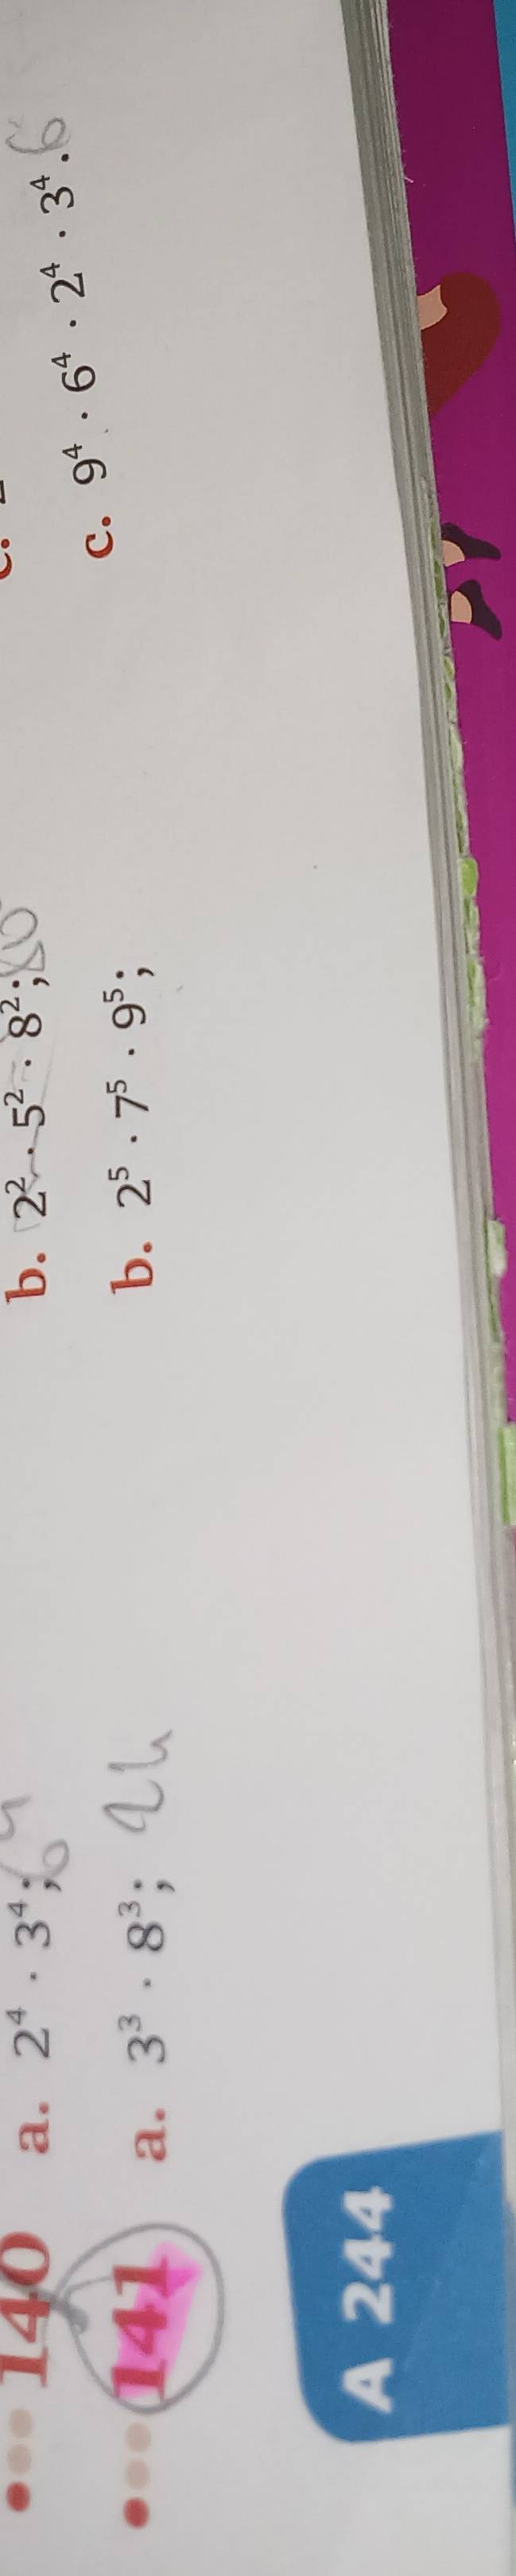 140 a. 2⁴ · 3⁴; 6⁴ b. 2² · 5² · 8²; 80 c.
141 a. 3³ · 8³; 24 b. 2⁵ · 7⁵ · 9⁵; c. 9⁴ · 6⁴ · 2⁴ · 3⁴. 6
A 244